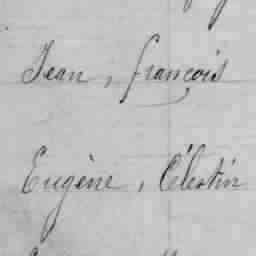 Jean, françois
Eugène, Célestin